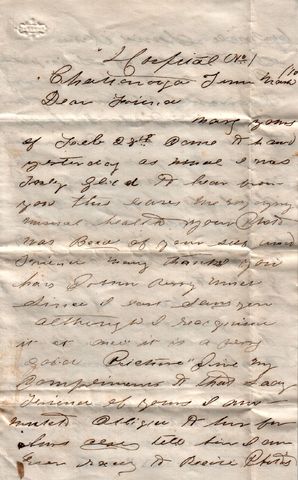 Hospital No 1
Chattanooga Tenn March
Dear Friend
Mary yours
of Feb 28th Came to hand
yesterday as usual I was
Truly glad to hear from
you this leaves me enjoying
usual health your Photo
was Recd of your self and
Friend many thanks you
have grown very much
Since I last saw you
although I recognise
it at once it is a very
good Picture" Give my
Compliments to that Lady
Friend of yours I am
much obliged to her for
hers also tell her I am
Ever ready to Receive Photo's